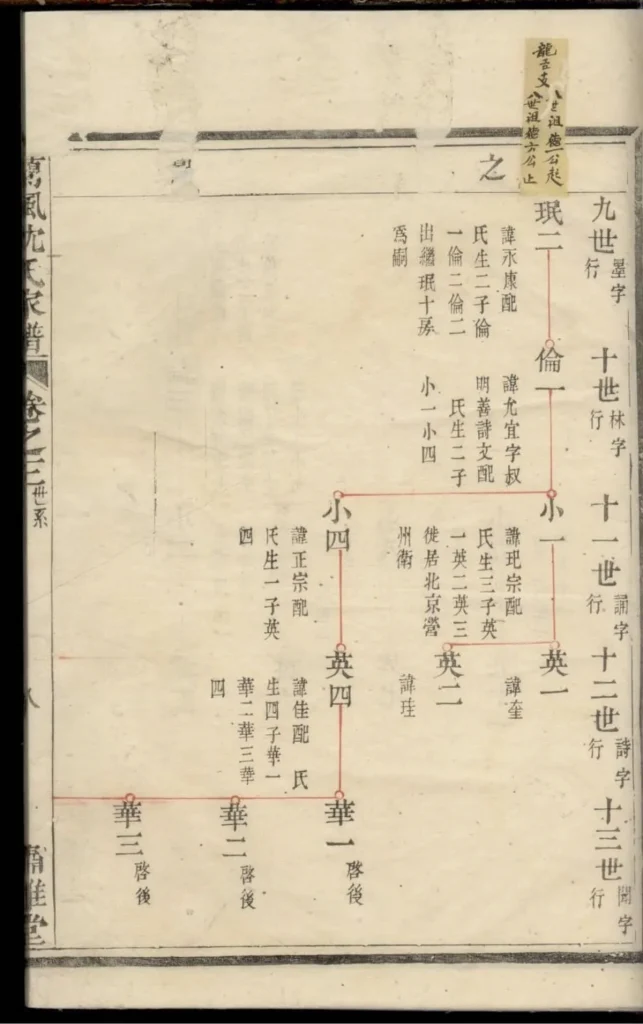 龍支
八世祖德一公起
八世祖德六公止
之
九世
墨字
行
珉二
諱永康配
氏生二子倫
一倫二倫二
出繼珉十房
爲嗣
十世
林字
行
倫一
諱允宜字叔
明善詩文配
氏生二子
小一小四
十一世
誦字
行
小一
諱玘宗配
氏生三子英
一英二英三
徙居北京營
州衛
小四
諱正宗配
氏生一子英
四
十二世
詩字
行
英一
諱奎
英二
諱珪
英四
諱佳配 氏
生四子華一
華二華三華
四
十三世
字
行
華一
啓後
華二
啓後
華三
啓後
風沈氏家譜
卷之三
世系
八
堂